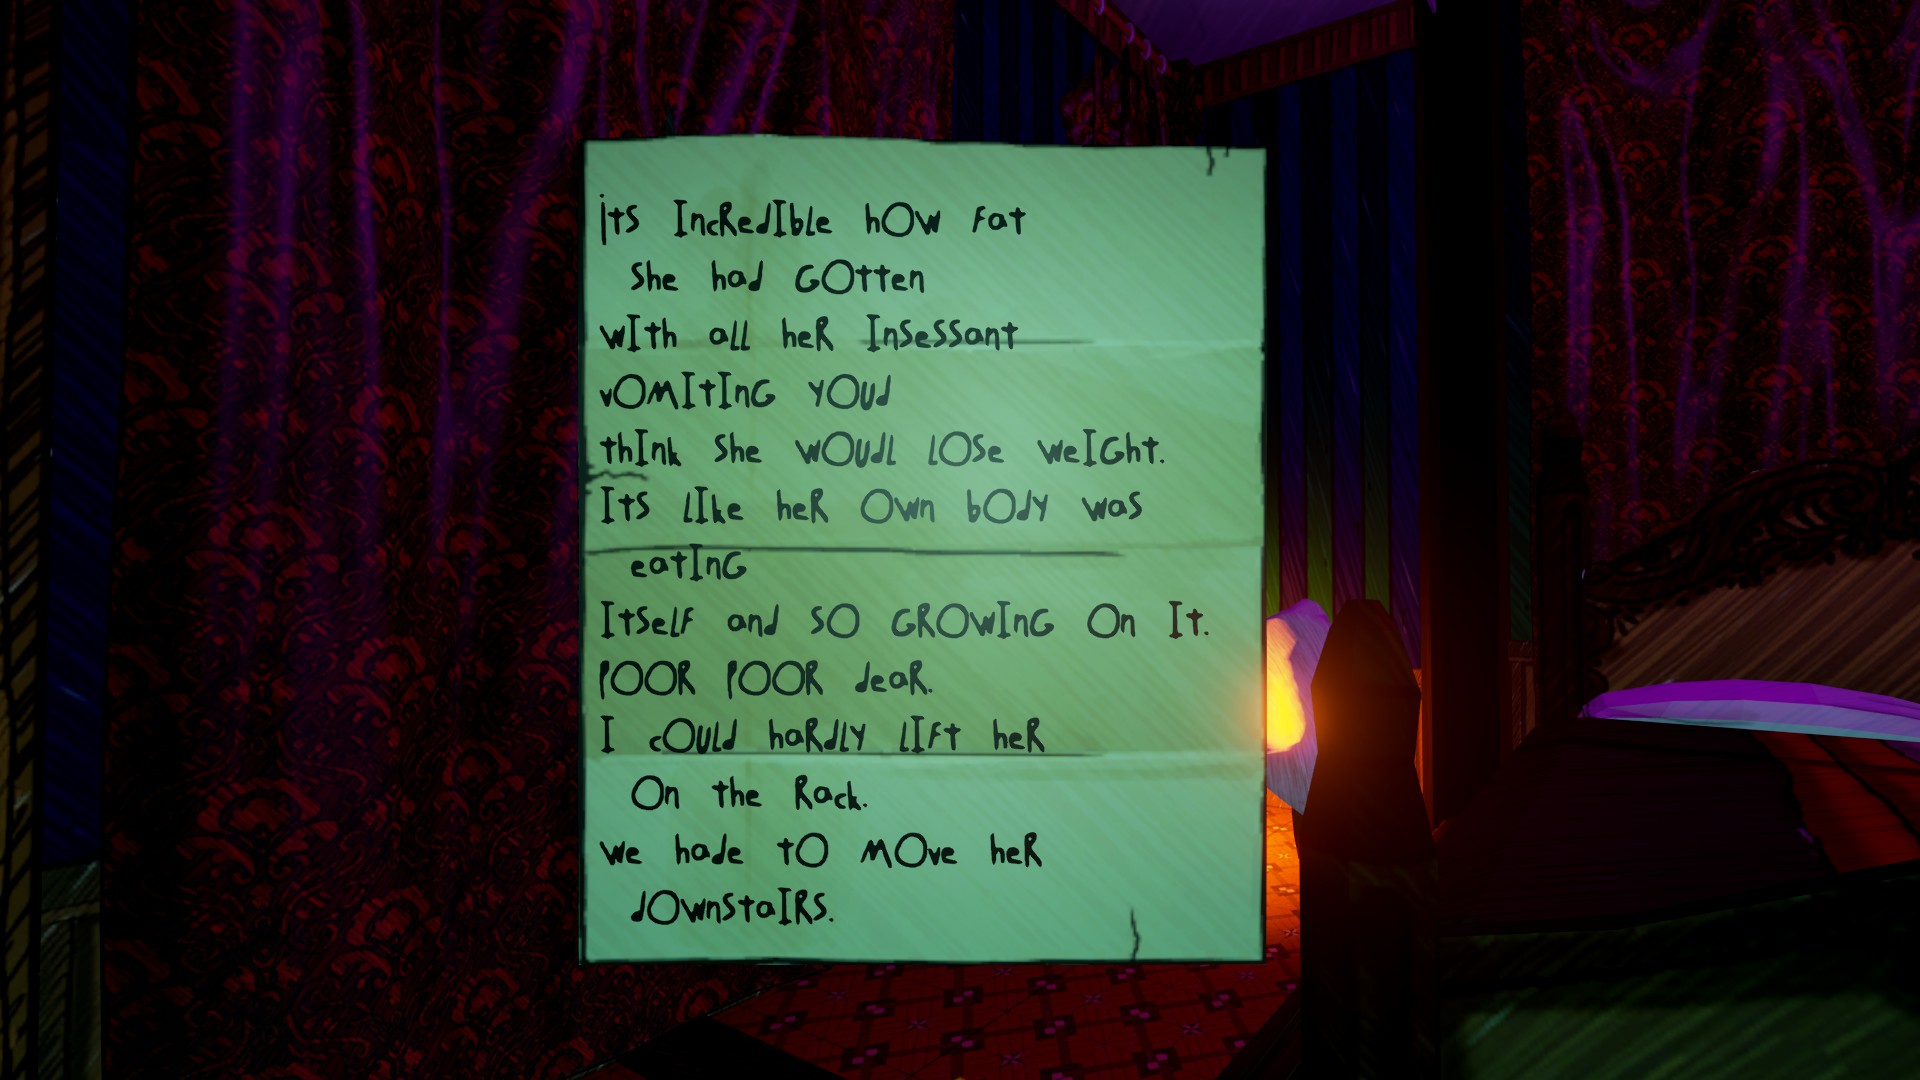 its IncRedIble hOw Fat
She had GOtten
wIth all heR InSeSSant
vOMItInG YOUd
thInk She wOUdl lOSe weIGht.
ItS lIke heR Own bOdY waS
eatInG
ItSelF and SO GROwInG On It.
POOR POOR deaR.
I cOUld haRdlY lIFt heR
On the Rack.
we hade tO MOve heR
dOwnStaIRS.